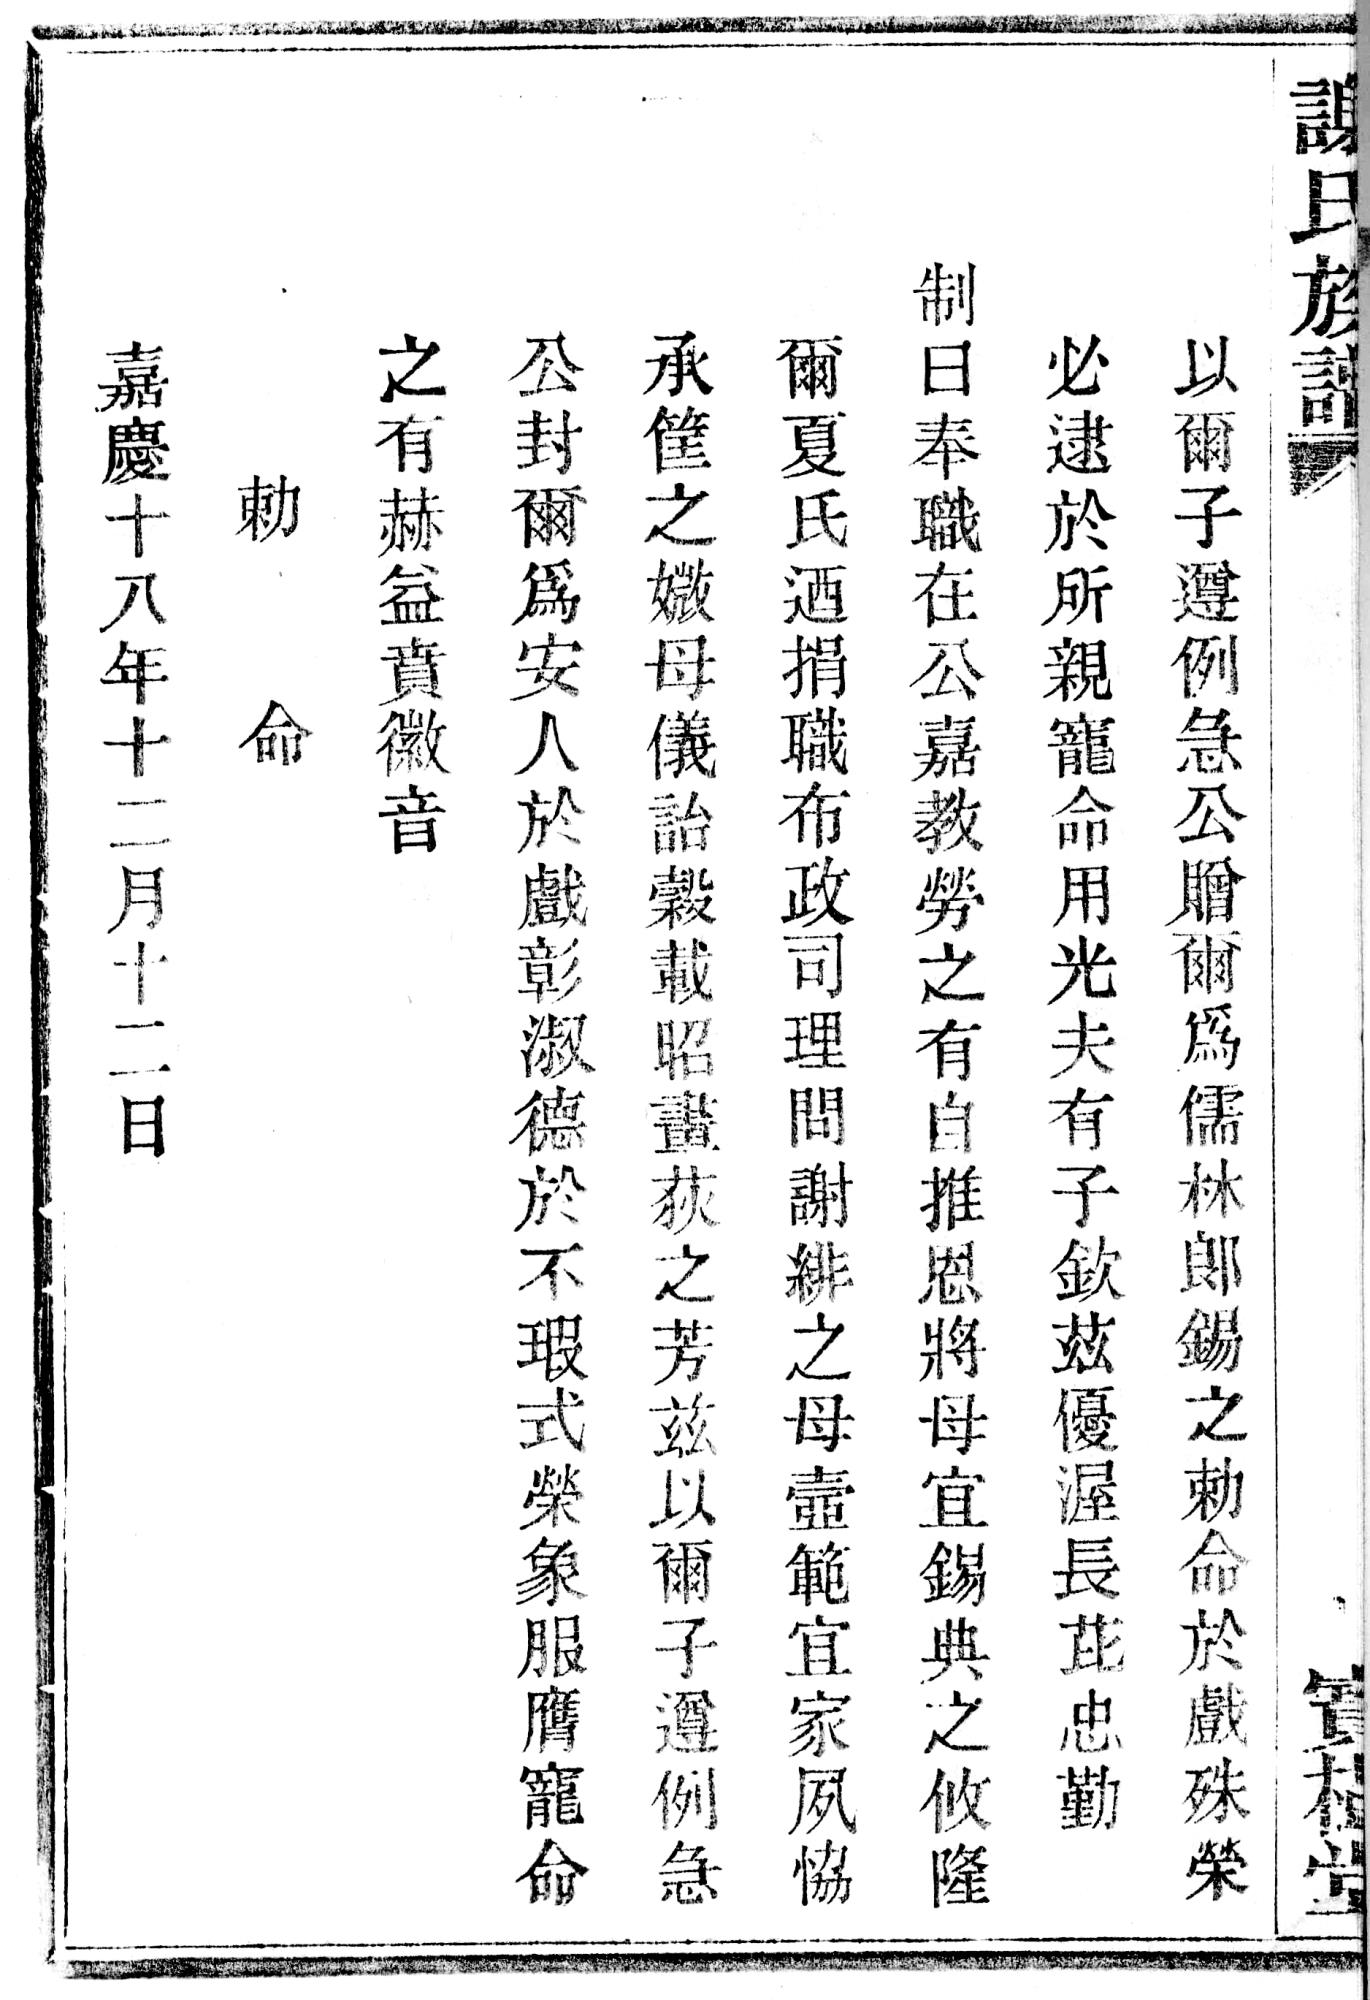 謝氏族譜
寶樹堂
以爾子遵例急公贈爾爲儒林郎錫之勅命於戲殊榮
必逮於所親寵命用光夫有子欽茲優渥長芘忠勤
制曰奉職在公嘉教勞之有自推恩將母宜錫典之攸隆
爾夏氏迺捐職布政司理問謝緋之母壼範宜家夙恊
承筐之媺母儀詒穀載昭畫荻之芳茲以爾子遵例急
公封爾爲安人於戲彰淑德於不瑕式榮象服膺寵命
之有赫益賁徽音
勅命
嘉慶十八年十二月十二日